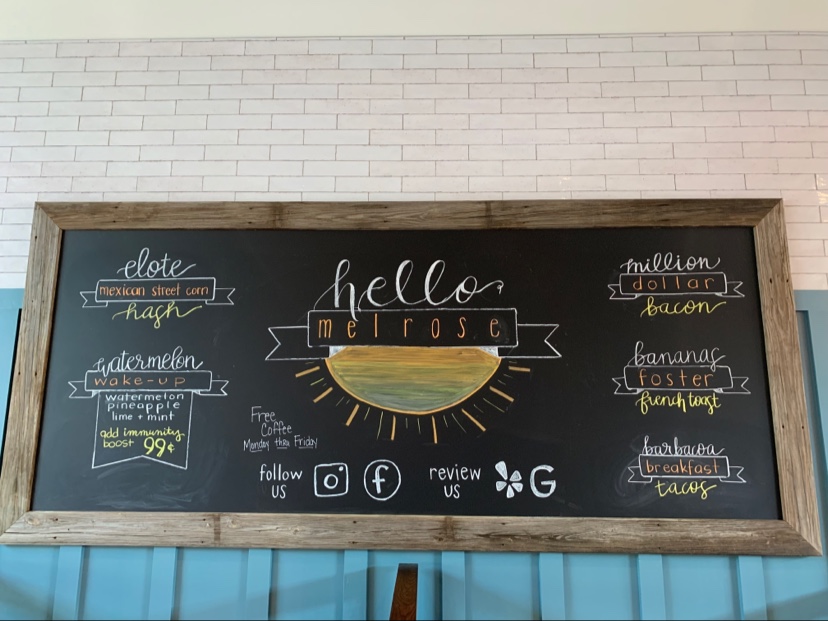 elote
mexican street corn
hash
watermelon
wake-up
watermelon
pineapple
lime + mint
add immunity
boost 99¢
hello
melrose
Free
Coffee
Monday thru Friday
follow
us
f
review
us
G
million
dollar
bacon
bananas
foster
french toast
barbacoa
breakfast
tacos